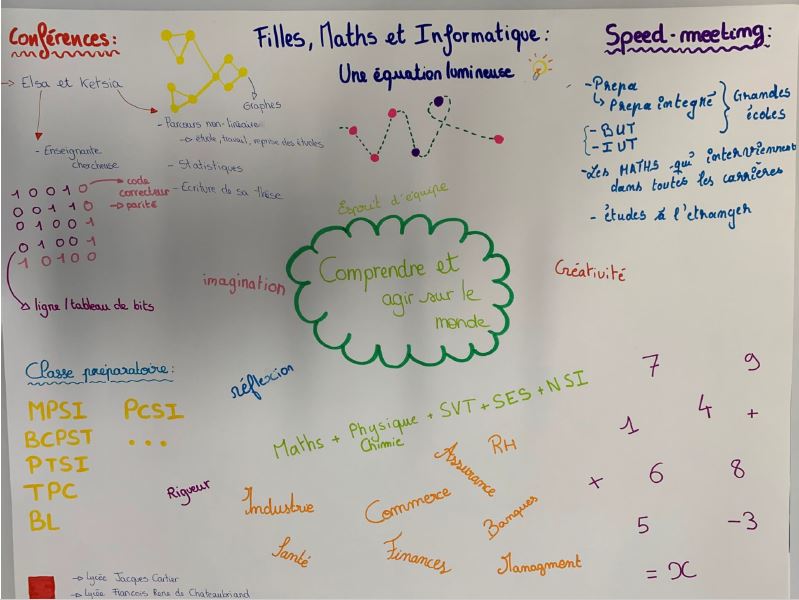 Conférences:
Filles, Maths et Informatique:
Une équation lumineuse
Speed-meeting:
→ Elsa et Ketsia
Graphes
- Enseignante
chercheuse
- Parcours non-linéaire
→ étude, travail, reprise des études
- Statistiques
- Ecriture de sa thèse
- Prepa
↳ Prepa integré
Grandes
écoles
- BUT
- IUT
- Les MATHS qui interviennent
dans toutes les carrières
- études à l'etranger
1 0 0 1 0
0 0 1 1 0
1 0 0 0 1
0 1 0 0 1
1 0 1 0 0
code
correcteur
→ parité
ligne/tableau de bits
Esprit d'équipe
imagination
Comprendre et
agir sur le
monde
Créativité
Classe préparatoire:
MPSI PCSI
BCPST ...
PTSI
TPC
BL
réflexion
Maths + Physique + SVT + SES + NSI
Chimie
Rigueur
Industrie
Commerce
Assurance
RH
Banques
Santé
Finances
Managment
7 9
1 4 +
+ 6 8
5 -3
= x
→ Lycée Jacques Cartier
→ Lycée Francois Rene de Chateaubriand